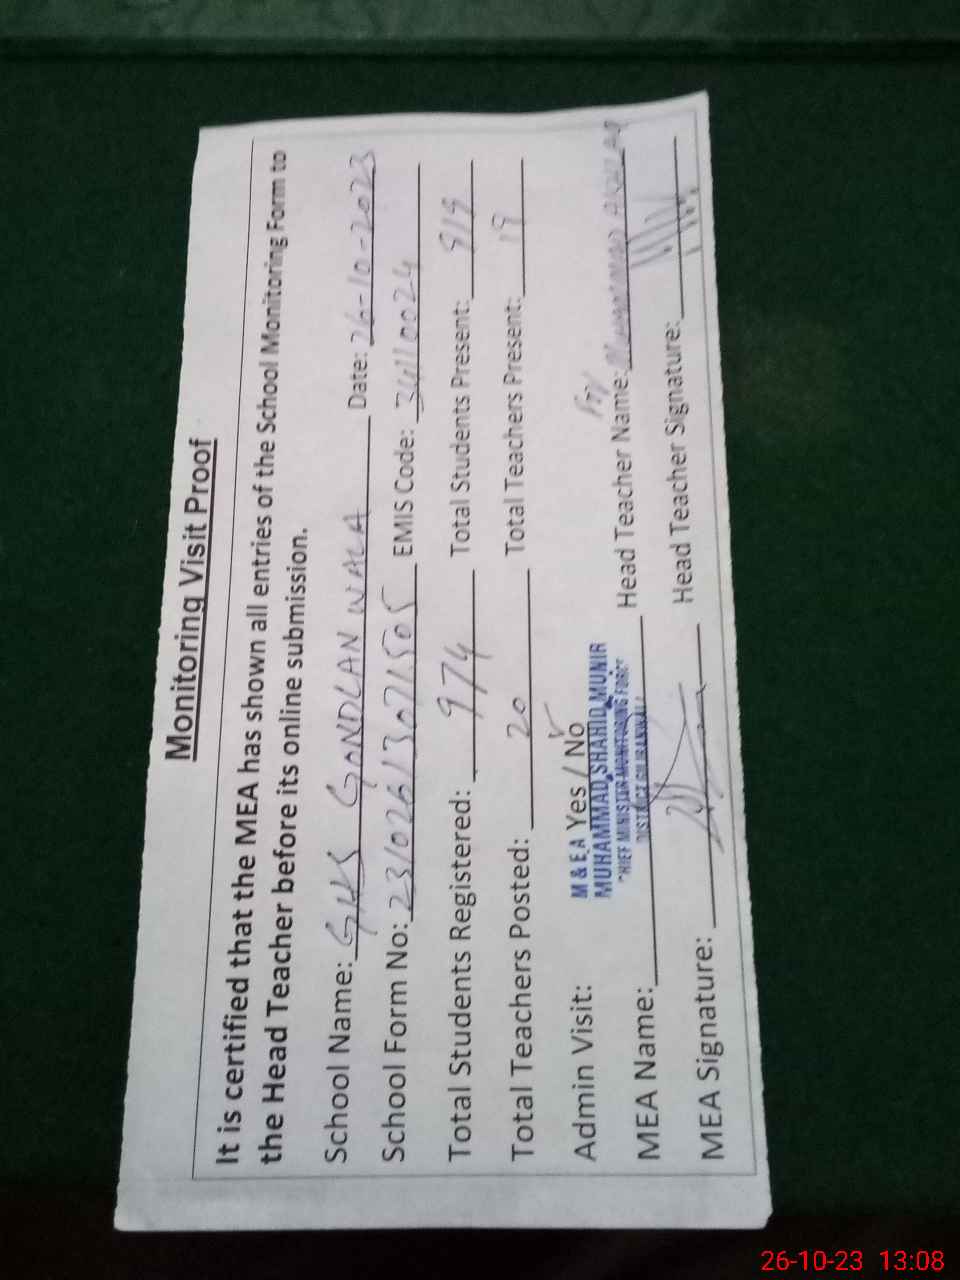 Monitoring Visit Proof
It is certified that the MEA has shown all entries of the School Monitoring Form to
the Head Teacher before its online submission.
School Name: GHS GONDLAN WALA Date: 26-10-2023
School Form No: 23102613071505 EMIS Code: 34110024
Total Students Registered: 974 Total Students Present: 919
Total Teachers Posted: 20 Total Teachers Present: 19
Admin Visit: Yes / No ✓
M & E A
MUHAMMAD SHAHID MUNIR
CHIEF MINISTER MONITORING FORCE
DISTRICT GUJRANWALA
MEA Name: Head Teacher Name: MUHAMMAD
MEA Signature: Head Teacher Signature:
26-10-23 13:08